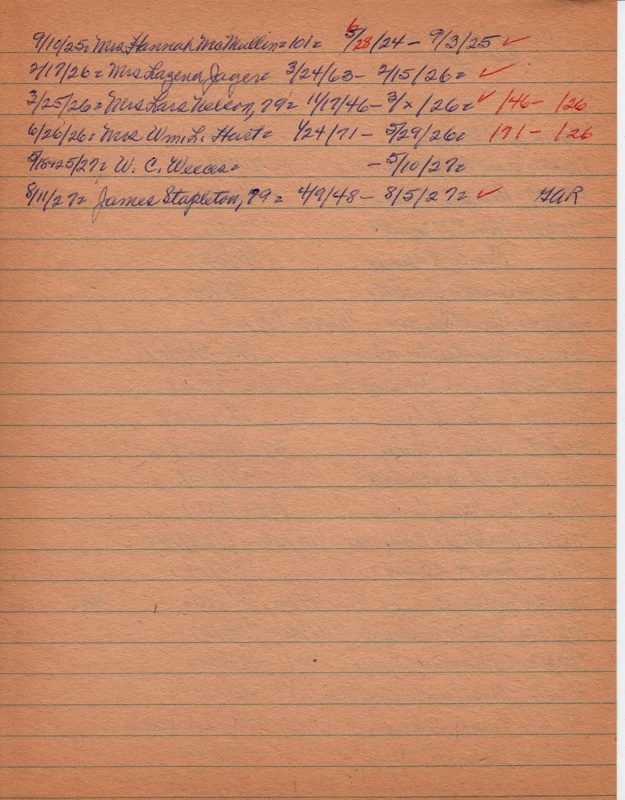 9/10/25= Mrs Hannah McMullin=101= 5/28/24 – 9/3/25 ✓
2/17/26= Mrs Lazena Jager= 3/24/63 – 2/15/26= ✓
3/25/26= Mrs Lars Nelson, 79= 11/17/46 – 3/x/26= ✓ /46 – /26
6/26/26= Mrs Wm. L. Hart= 1/24/71 – 5/29/26= /71 – /26
5/18+25/27= W. C. – 5/10/27=
8/11/27= James Stapleton, 79= 4/9/48 – 8/5/27= ✓ GAR